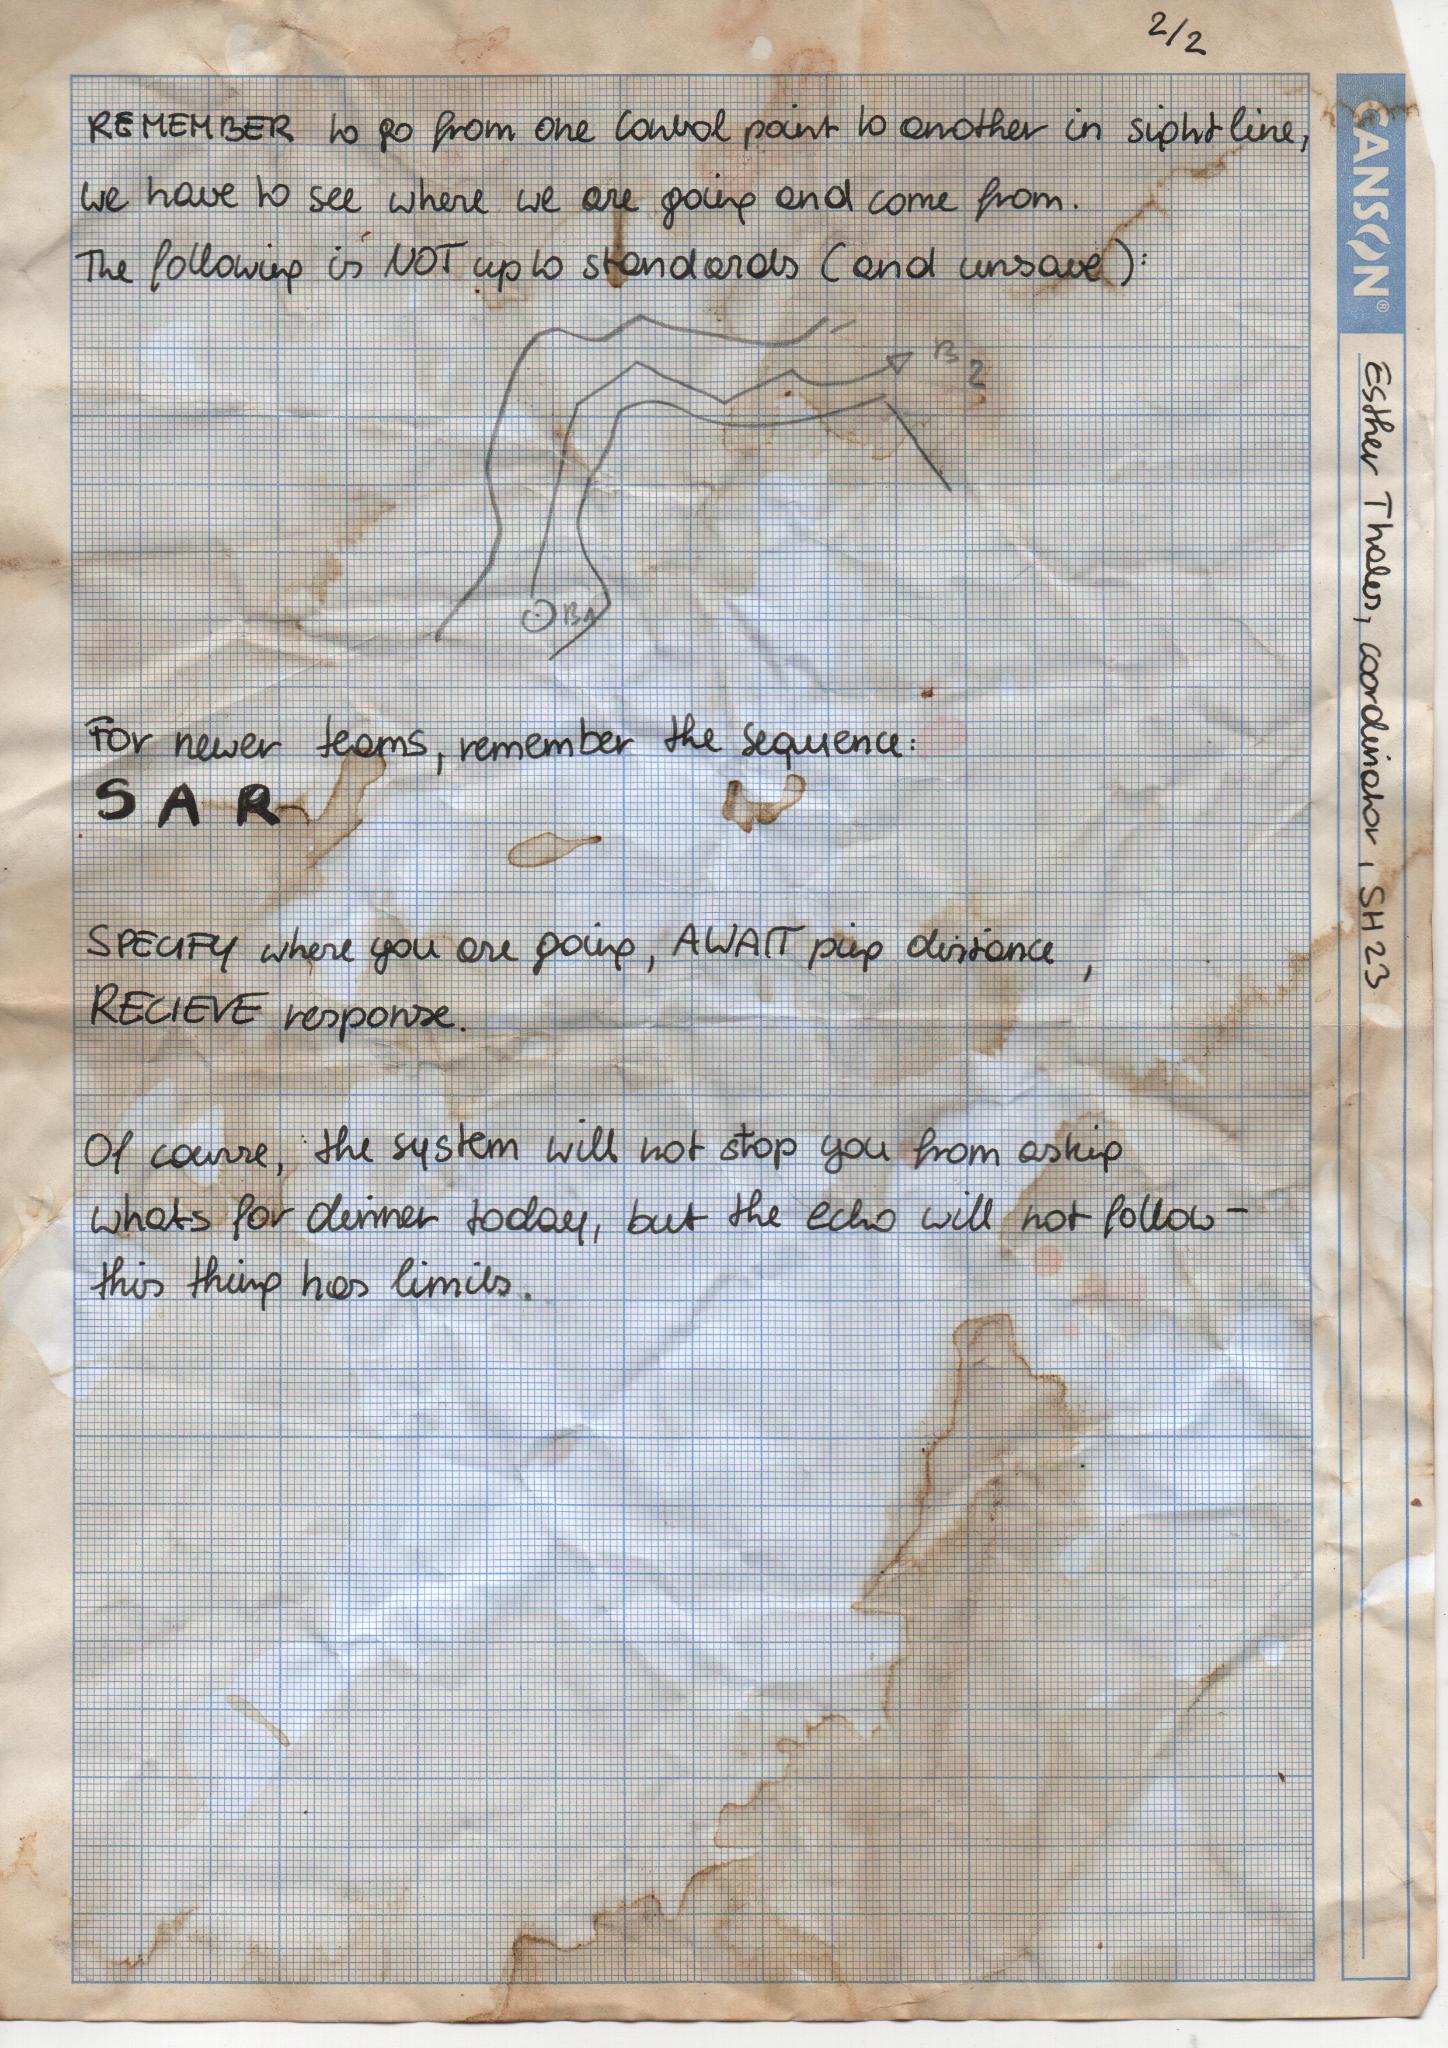 2/2
REMEMBER to go from one control point to another in sight line,
we have to see where we are going and come from.
The following is NOT up to standards (and unsave):
B2
B1
For newer teams, remember the sequence:
S A R
SPECIFY where you are going, AWAIT ping distance,
RECIEVE response.
Of course, the system will not stop you from asking
whats for dinner today, but the echo will not follow -
this thing has limits.
CANSON®
Esther Thales, coordinator, SH23